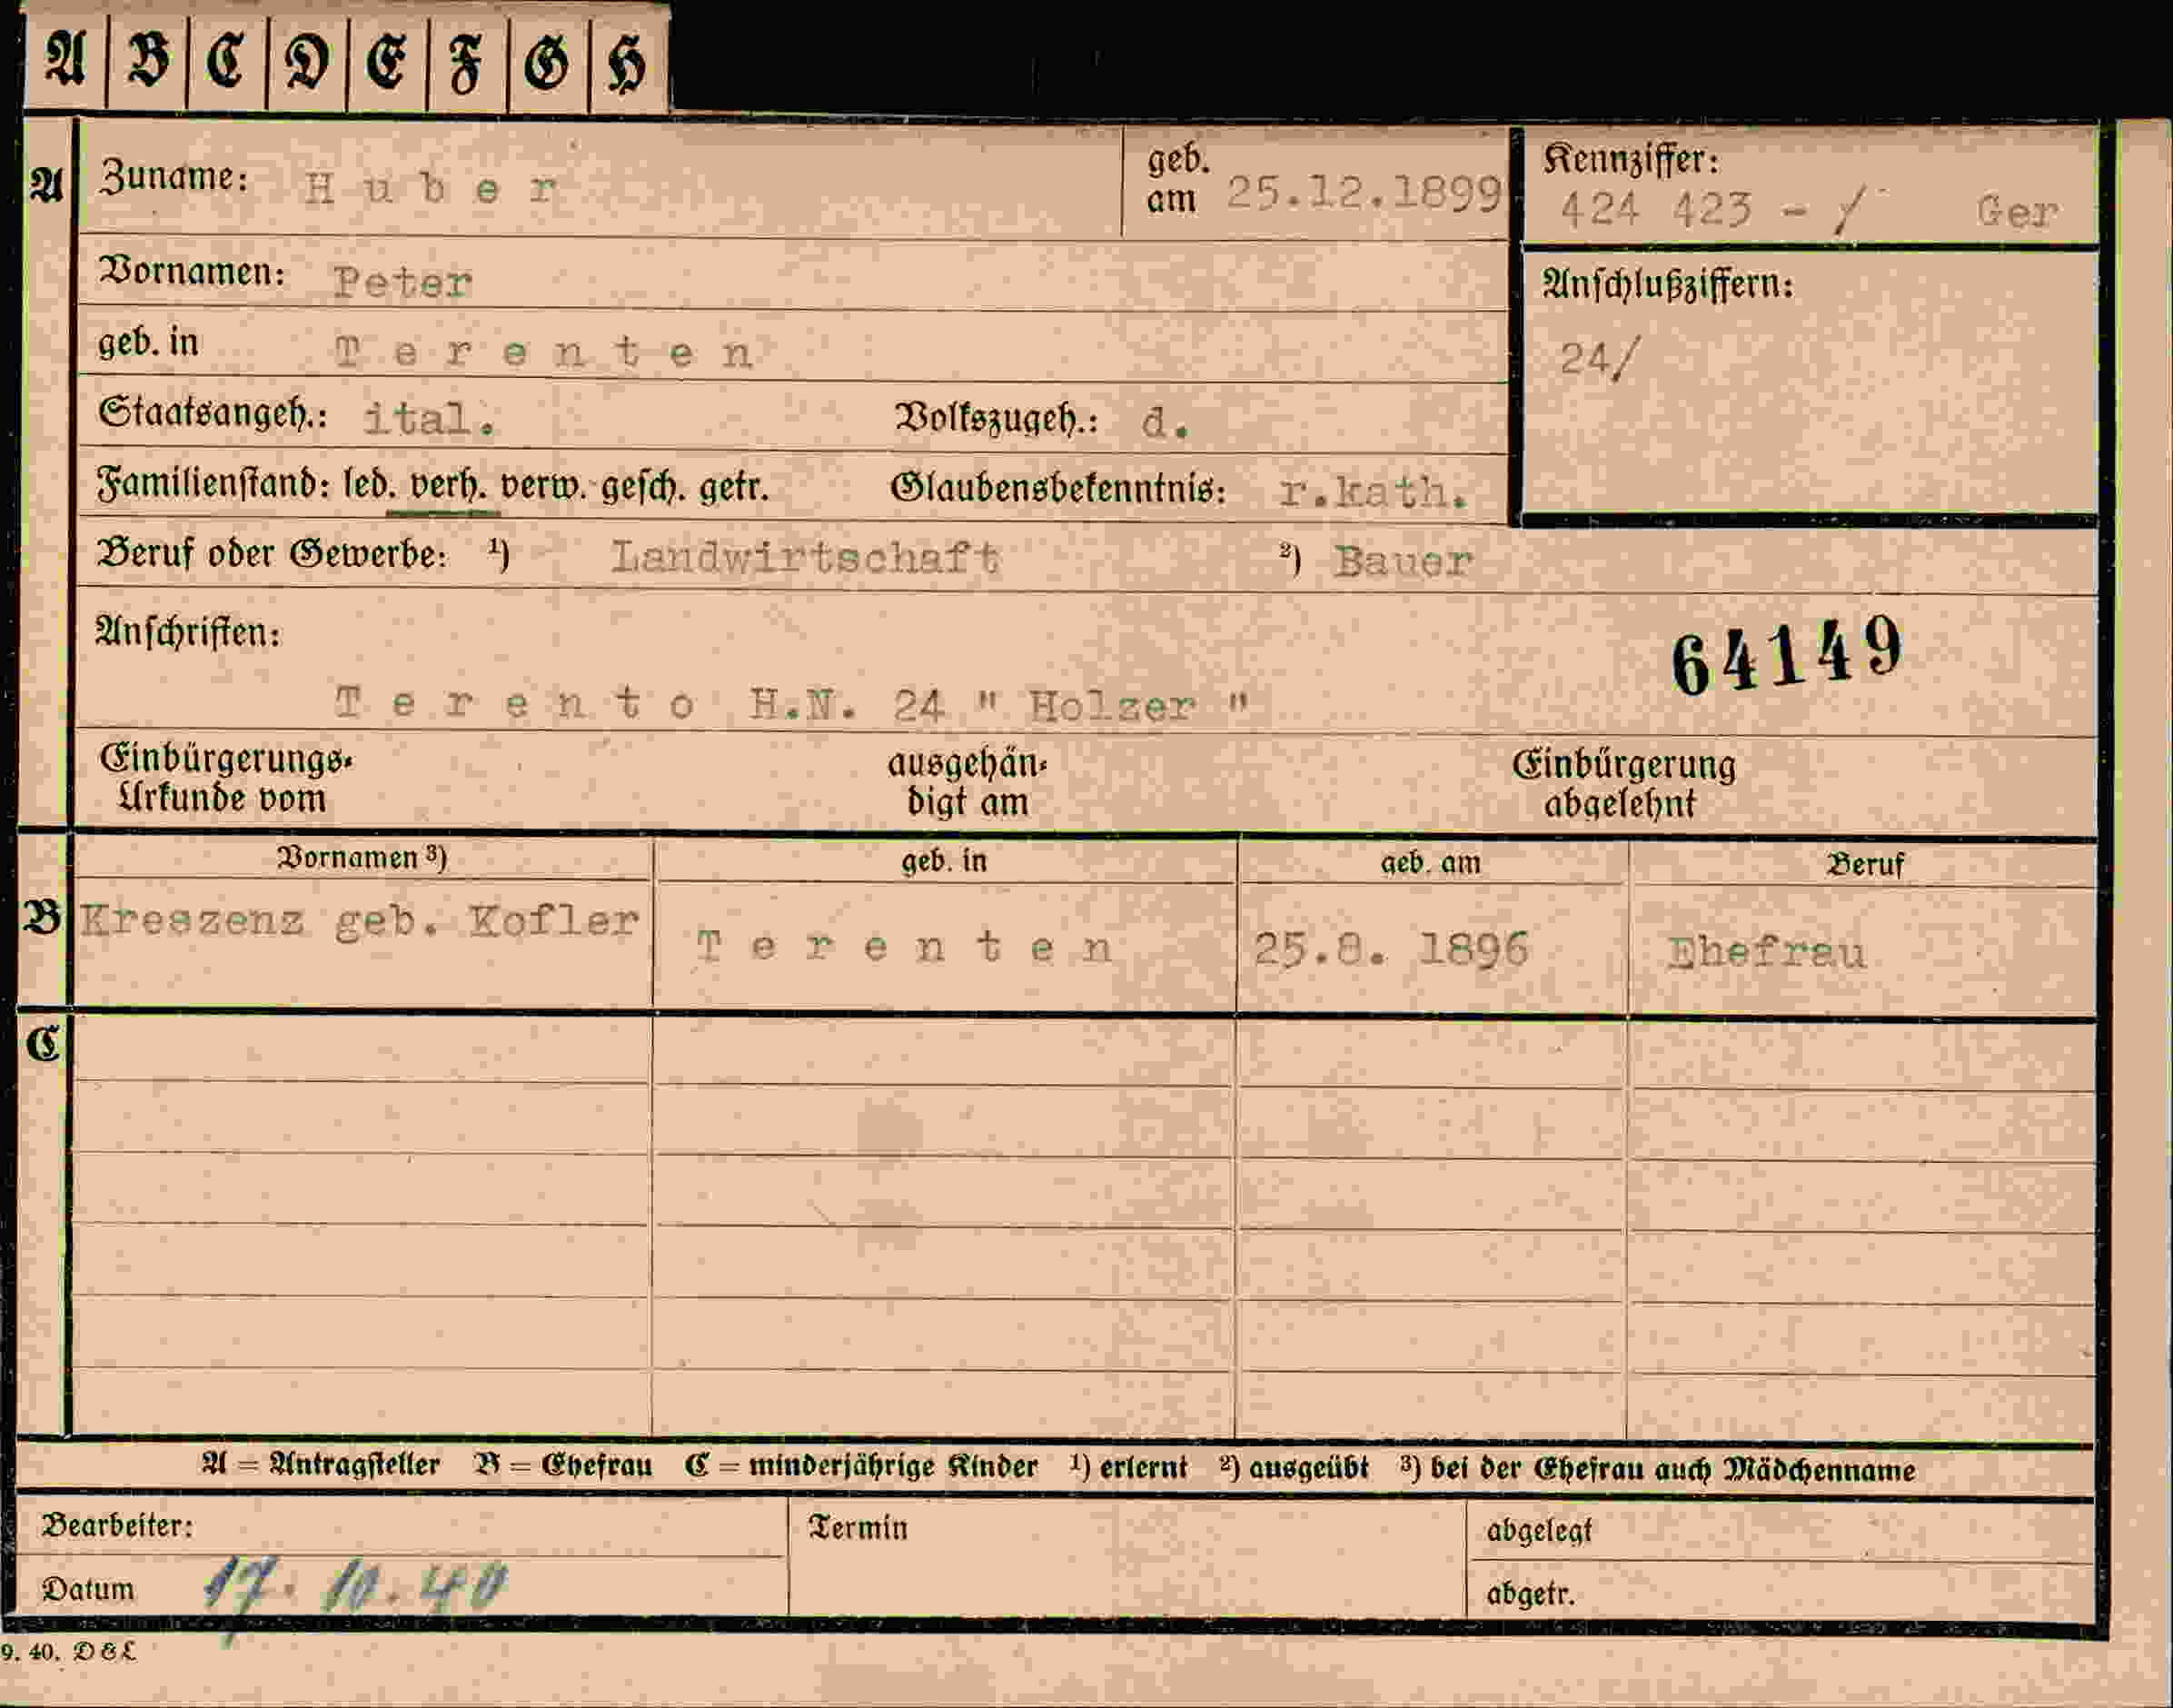 A B C D E F G H
A Zuname: Huber geb. am 25.12.1899 Kennziffer: 424 423 - / Ger
Vornamen: Peter Anschlußziffern:
geb. in Terenten 24/
Staatsangeh.: ital. Volkszugeh.: d.
Familienstand: led. verh. verw. gesch. getr. Glaubensbekenntnis: r.kath.
Beruf oder Gewerbe: ¹) Landwirtschaft ²) Bauer
Anschriften: 64149
Terento H.N. 24 " Holzer "
Einbürgerungs- ausgehän- Einbürgerung
Urkunde vom digt am abgelehnt
Vornamen ³) geb. in geb. am Beruf
B Kreszenz geb. Kofler Terenten 25.8. 1896 Ehefrau
C
A = Antragsteller B = Ehefrau C = minderjährige Kinder ¹) erlernt ²) ausgeübt ³) bei der Ehefrau auch Mädchenname
Bearbeiter: Termin abgelegt
Datum 17. 10. 40 abgetr.
9. 40. D&L